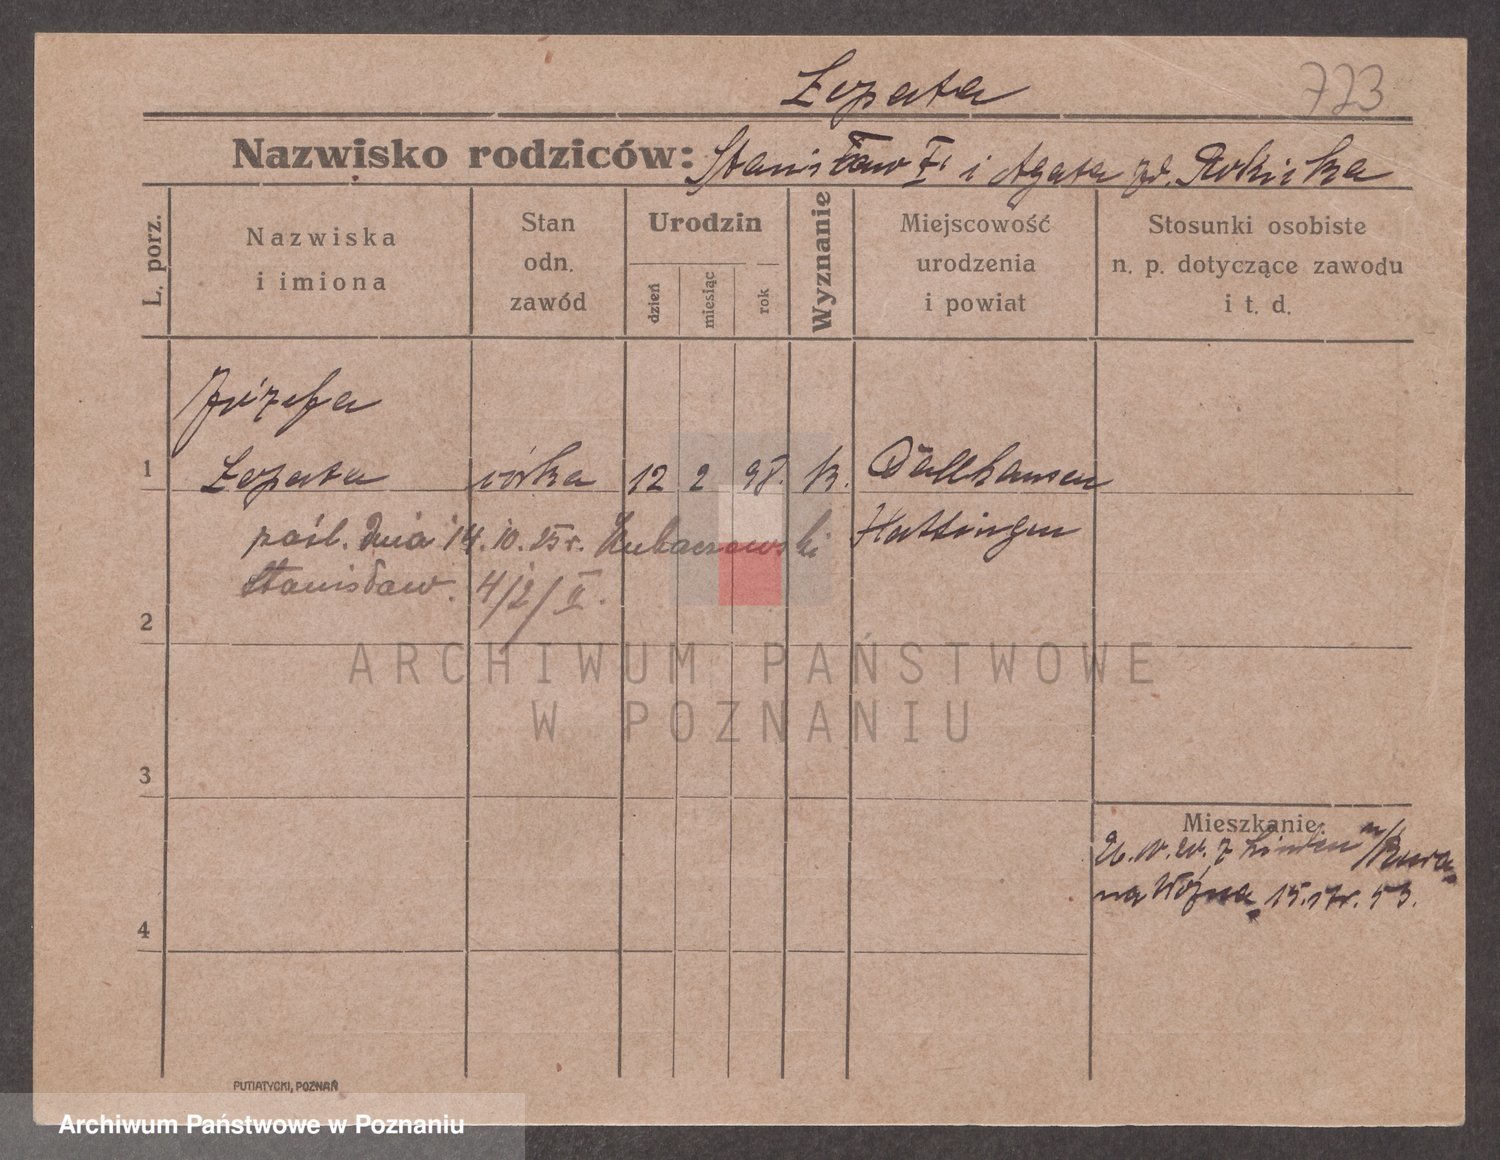 Łopata
723
Nazwisko rodziców: Stanisław †. i Agata zd. Rokicka
L. porz.
Nazwiska
i imiona
Stan
odn.
zawód
Urodzin
dzień
miesiąc
rok
Wyznanie
Miejscowość
urodzenia
i powiat
Stosunki osobiste
n. p. dotyczące zawodu
i t. d.
Józefa
1 Łopata córka 12 2 98. k. Dahlhausen
pośl. dnia 14.10.25r. Hubaczewski Hattingen
Stanisław. 4/2/II.
2
ARCHIWUM PAŃSTWOWE
W POZNANIU
3
Mieszkanie.
20. Linden n/Ruhrą
na 15. str. 53.
4
PUTIATYCKI, POZNAŃ
Archiwum Państwowe w Poznaniu